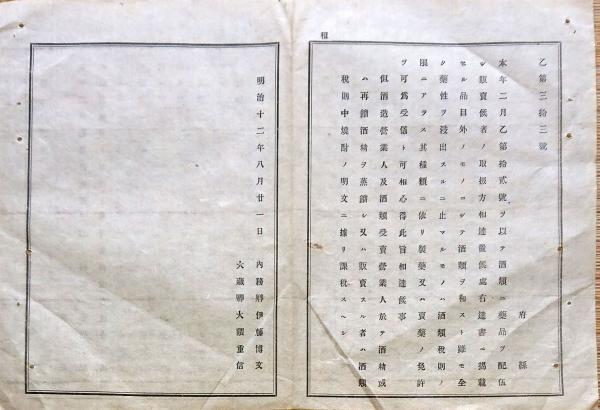 租
乙第三拾三號
府縣
本年二月乙第拾貳號ヲ以テ酒類ニ藥品ヲ配伍
シ販賣候者ノ取扱方相達置候處右達書ニ揭載
セル品目外ノモノニシテ酒類ヲ和スト雖モ全
ク藥性ヲ浸出スルニ止マルモノハ酒類税則ノ
限ニアラス其種類ニ依リ製藥又ハ賣藥ノ免許
ヲ可爲受儀ト可相心得此旨相達候事
但酒造營業人及酒類受賣營業人於テ酒精或
ハ再餾酒精ヲ蒸餾シ又ハ販賣スル者ハ酒類
税則中燒酎ノ明文ニ據リ課税スヘシ
明治十二年八月廿一日
內務卿伊藤博文
大藏卿大隈重信